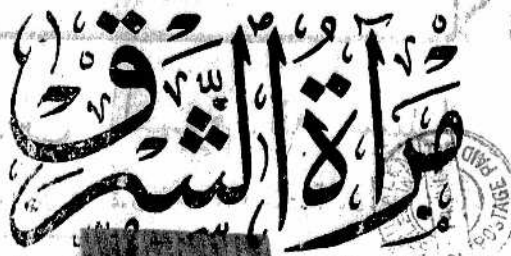 مرآة الشرق
POSTAGE PAID